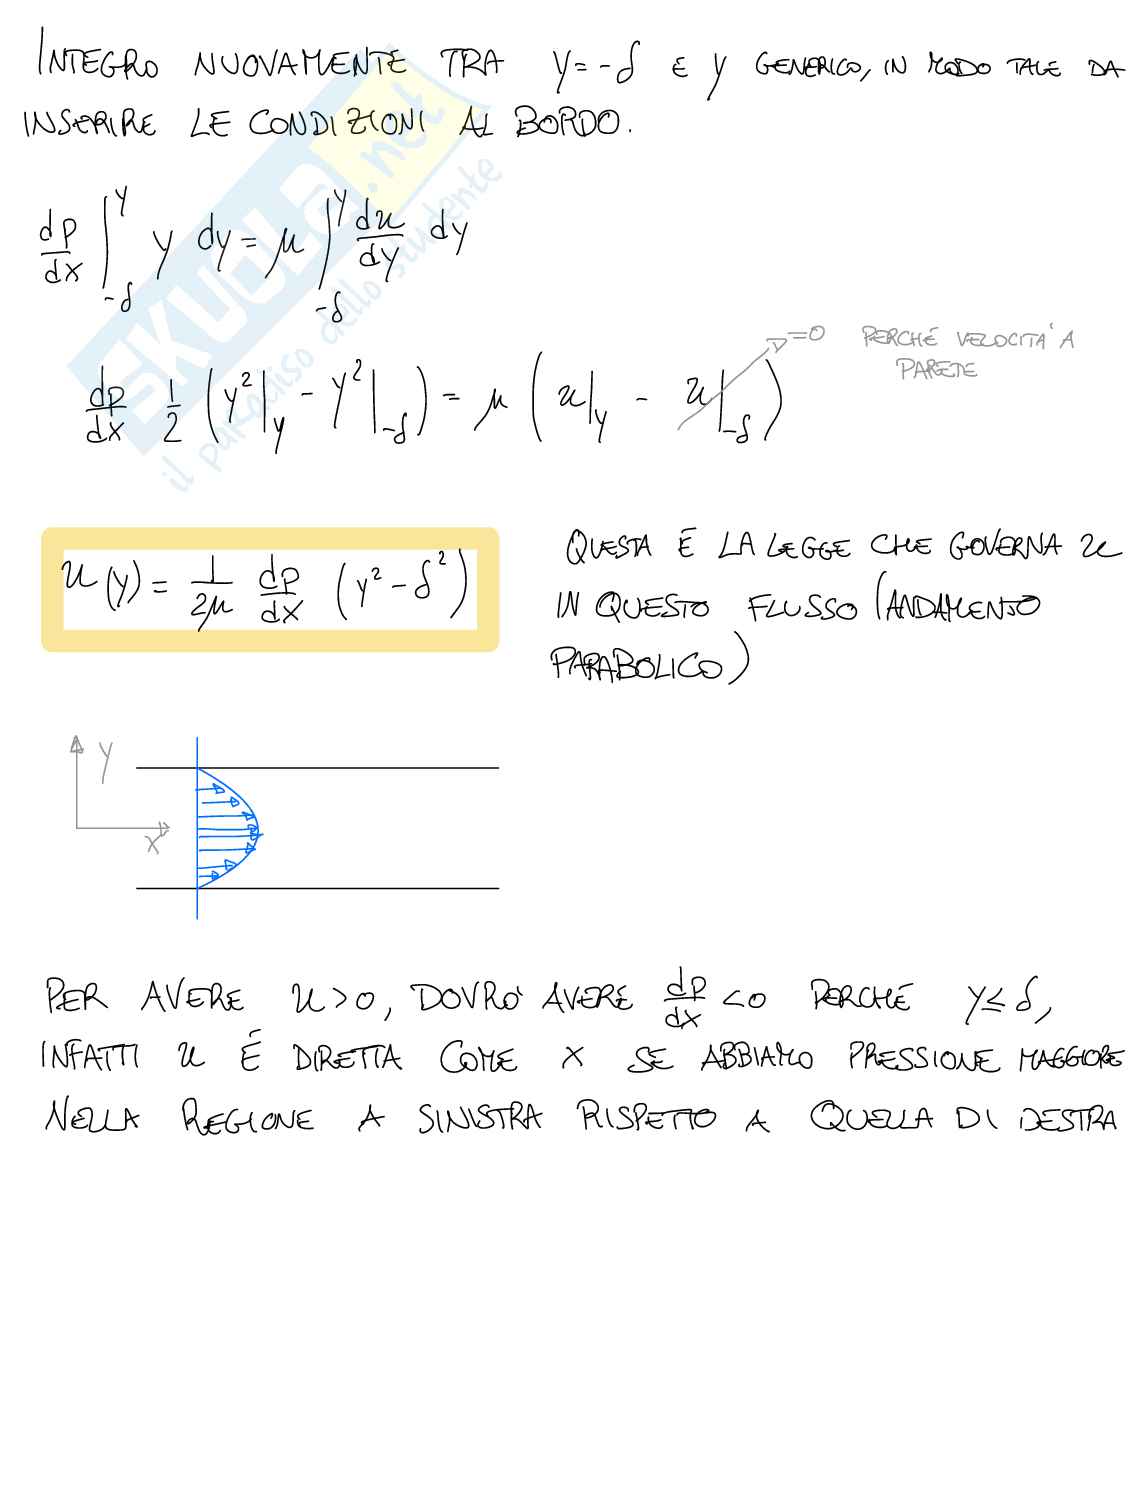 INTEGRO NUOVAMENTE TRA y=-δ E y GENERICO, IN MODO TALE DA
INSERIRE LE CONDIZIONI AL BORDO.
dp/dx ∫_{-δ}^{y} y dy = μ ∫_{-δ}^{y} du/dy dy
=0 PERCHÉ VELOCITÀ A
PARETE
dp/dx 1/2 (y²|_y - y²|_{-δ}) = μ (u|_y - u|_{-δ})
u(y) = 1/2μ dp/dx (y² - δ²)
QUESTA È LA LEGGE CHE GOVERNA u
IN QUESTO FLUSSO (ANDAMENTO
PARABOLICO)
y
x
PER AVERE u>0, DOVRÒ AVERE dp/dx <0 PERCHÉ y≤δ,
INFATTI u È DIRETTA COME x SE ABBIAMO PRESSIONE MAGGIORE
NELLA REGIONE A SINISTRA RISPETTO A QUELLA DI DESTRA
SKUOLA.net
il paradiso dello studente